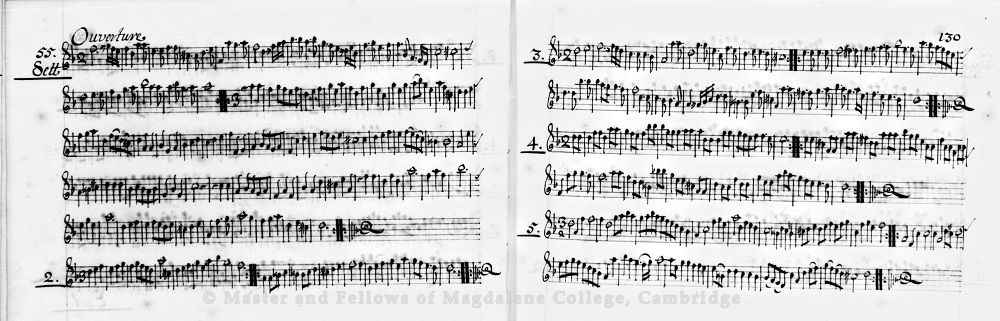 Ouverture.
55.
Sett
2.
130
3.
4.
5.
© Master and Fellows of Magdalene College, Cambridge